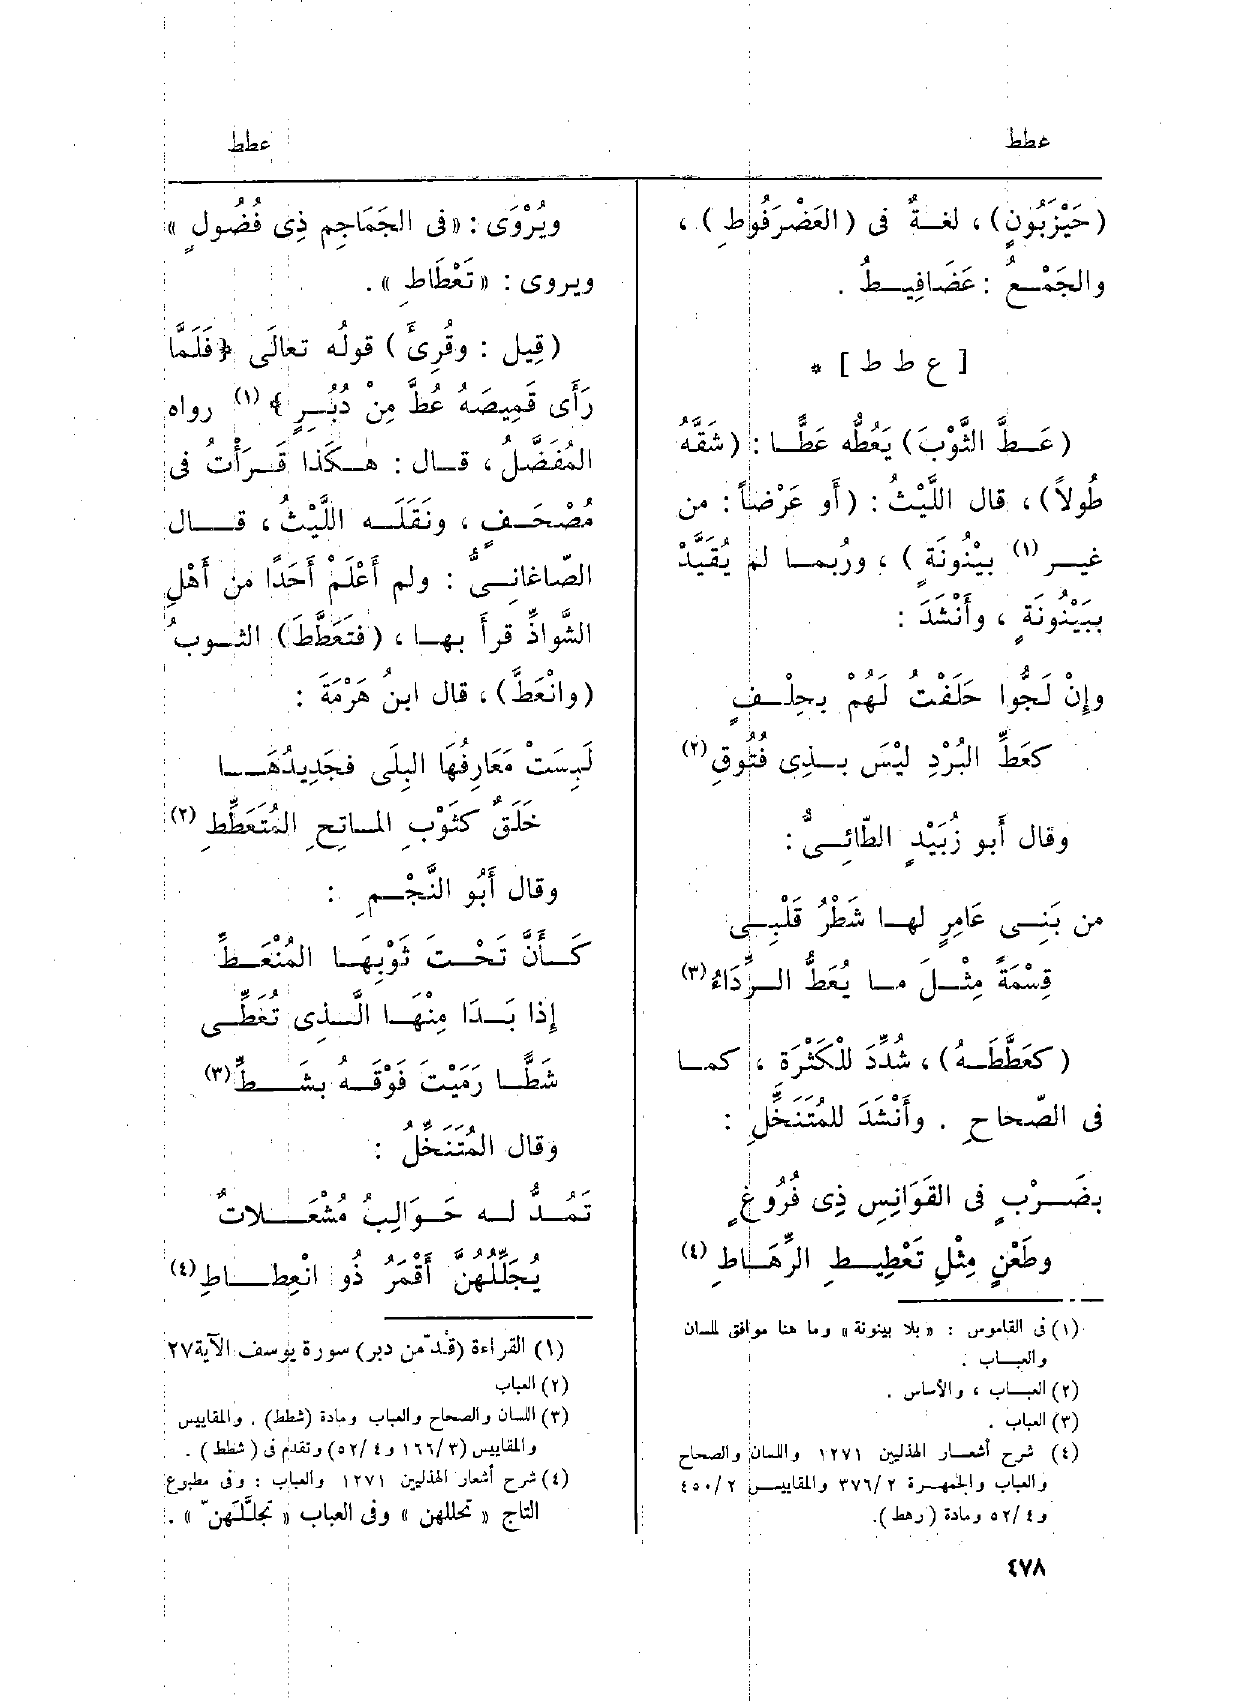 عطط
عطط
(حَيْزَبُونٍ)، لغةٌ فى (العَضْرَفُوطِ)،
والجَمْعُ : عَضَافِيطُ .
[ ع ط ط ] *
(عَطَّ الثَّوْبَ) يَعُطُّه عَطًّا : (شَقَّهُ
طُولاً)، قال اللَّيْثُ : (أو عَرْضاً : من
غير (١) بيْنُونَةٍ ) ، ورُبما لم يُقَيَّدْ
ببَيْنُونَةٍ ، وأَنْشَدَ :
وإِنْ لَجُّوا حَلَفْتُ لَهُمْ بحِلْفٍ
كعَطِّ البُرْدِ ليْسَ بذِى فُتُوقِ (٢)
وقال أَبو زُبَيْدٍ الطّائِىُّ :
من بَنِى عَامِرٍ لها شَطْرُ قَلْبِى
قِسْمَةً مِثْلَ ما يُعَطُّ الرِّدَاءُ (٣)
(كعَطَّطَهُ) ، شُدِّدَ للْكَثْرَة ، كما
فى الصّحاحِ . وأَنْشَدَ للمُتَنَخِّلِ :
بضَرْبٍ فى القَوَانِسِ ذِى فُرُوغٍ
وطَعْنٍ مِثْلِ تَعْطِيطِ الرِّهَاطِ (٤)
(١) فى القاموس : « بلا بينونة » وما هنا موافق للسان
والعباب .
(٢) العباب ، والأساس .
(٣) العباب .
(٤) شرح أشعار الهذليين ١٢٧١ واللسان والصحاح
والعباب والجمهرة ٣٧٦/٢ والمقاييس ٤٥٠/٢
و٥٢/٤ ومادة (رهط ).
ويُرْوَى : «فى الجَمَاجِمِ ذِى فُضُولٍ »
ويروى : « تَعْطَاطِ » .
(قِيل : وقُرِىَٔ ) قولُه تعالَى ﴿فَلَمَّا
رَأَى قَمِيصَهُ عُطَّ مِنْ دُبُرٍ ﴾ (١) رواه
المُفَضَّلُ ، قال : هكذا قَرَأْتُ فى
مُصْحَفٍ ، ونَقَلَه اللَّيْثُ ، قال
الصّاغانِىُّ : ولم أَعْلَمْ أَحَدًا من أَهْلِ
الشَّواذِّ قرأَ بها ، (فتَعَطَّطَ) الثوبُ
(وانْعَطَّ) ، قال ابنُ هَرْمَةَ :
لَبِسَتْ مَعَارِفُهَا البِلَى فجَدِيدُهَا
خَلَقٌ كثَوْبِ الماتِحِ المُتَعَطِّطِ (٢)
وقال أَبُو النَّجْمِ :
كأَنَّ تَحْتَ ثَوْبِهَا المُنْعَطِّ
إِذا بَدَا مِنْهَا الَّذِى تُغَطِّى
شَطًّا رَمَيْتَ فَوْقَهُ بشَطِّ (٣)
وقال المُتَنَخِّلُ :
تَمُدُّ له حَوالِبُ مُشْعَلاتٌ
يُجَلِّلُهُنَّ أَقْمَرُ ذُو انْعِطاطِ (٤)
(١) القراءة (قُدّ من دبر) سورة يوسف الآية ٢٧
(٢) العباب
(٣) اللسان والصحاح والعباب ومادة (شطط) . والمقاييس
والمقاييس (١٦٦/٣ و٥٢/٤) وتقدم فى (شطط ) .
(٤) شرح أشعار الهذليين ١٢٧١ والعباب : وفى مطبوع
التاج « تحللهن » وفى العباب « تجلَّلَهنّ » .
٤٧٨